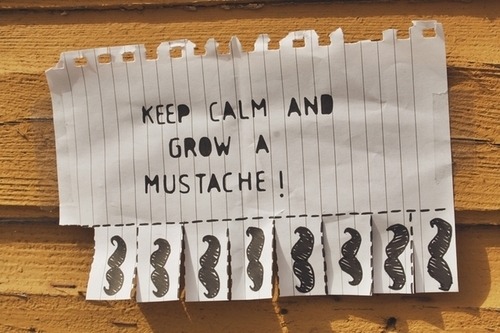 KEEP CALM AND
GROW A
MUSTACHE!